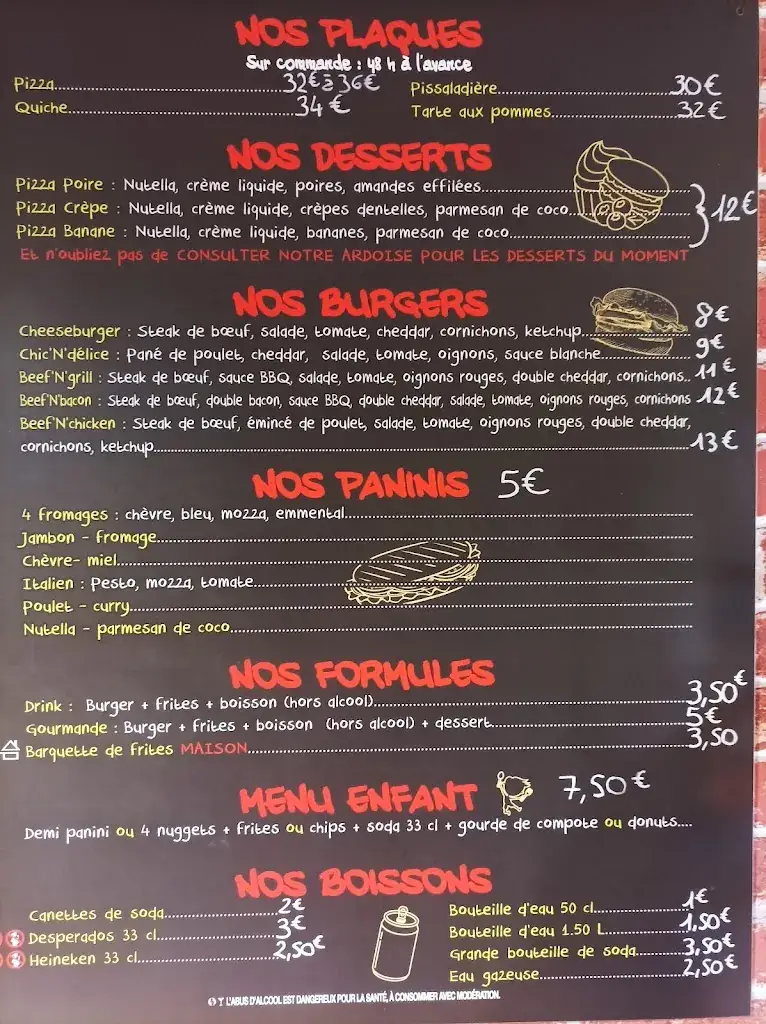 NOS PLAQUES
Sur commande : 48 h à l'avance
Pizza 32€ à 36€ Pissaladière 30€
Quiche 34€ Tarte aux pommes 32€
NOS DESSERTS
Pizza Poire : Nutella, crème liquide, poires, amandes effilées
Pizza Crèpe : Nutella, crème liquide, crèpes dentelles, parmesan de coco 12€
Pizza Banane : Nutella, crème liquide, bananes, parmesan de coco
Et n'oubliez pas de CONSULTER NOTRE ARDOISE POUR LES DESSERTS DU MOMENT
NOS BURGERS
Cheeseburger : Steak de bœuf, salade, tomate, cheddar, cornichons, ketchup 8€
Chic'N'délice : Pané de poulet, cheddar, salade, tomate, oignons, sauce blanche 9€
Beef'N'grill : Steak de bœuf, sauce BBQ, salade, tomate, oignons rouges, double cheddar, cornichons.. 11€
Beef'N'bacon : Steak de bœuf, double bacon, sauce BBQ, double cheddar, salade, tomate, oignons rouges, cornichons 12€
Beef'N'chicken : Steak de bœuf, émincé de poulet, salade, tomate, oignons rouges, double cheddar,
cornichons, ketchup 13€
NOS PANINIS 5€
4 fromages : chèvre, bleu, mozza, emmental
Jambon - fromage
Chèvre- miel
Italien : Pesto, mozza, tomate
Poulet - curry
Nutella - parmesan de coco
NOS FORMULES
Drink : Burger + frites + boisson (hors alcool) 3,50€
Gourmande : Burger + frites + boisson (hors alcool) + dessert 5€
Barquette de frites MAISON 3,50
MENU ENFANT 7,50€
Demi panini ou 4 nuggets + frites ou chips + soda 33 cl + gourde de compote ou donuts....
NOS BOISSONS
Canettes de soda 2€ Bouteille d'eau 50 cl 1€
Desperados 33 cl 3€ Bouteille d'eau 1.50 L 1,50€
Heineken 33 cl 2,50€ Grande bouteille de soda 3,50€
Eau gazeuse 2,50€
L'ABUS D'ALCOOL EST DANGEREUX POUR LA SANTÉ, À CONSOMMER AVEC MODÉRATION.